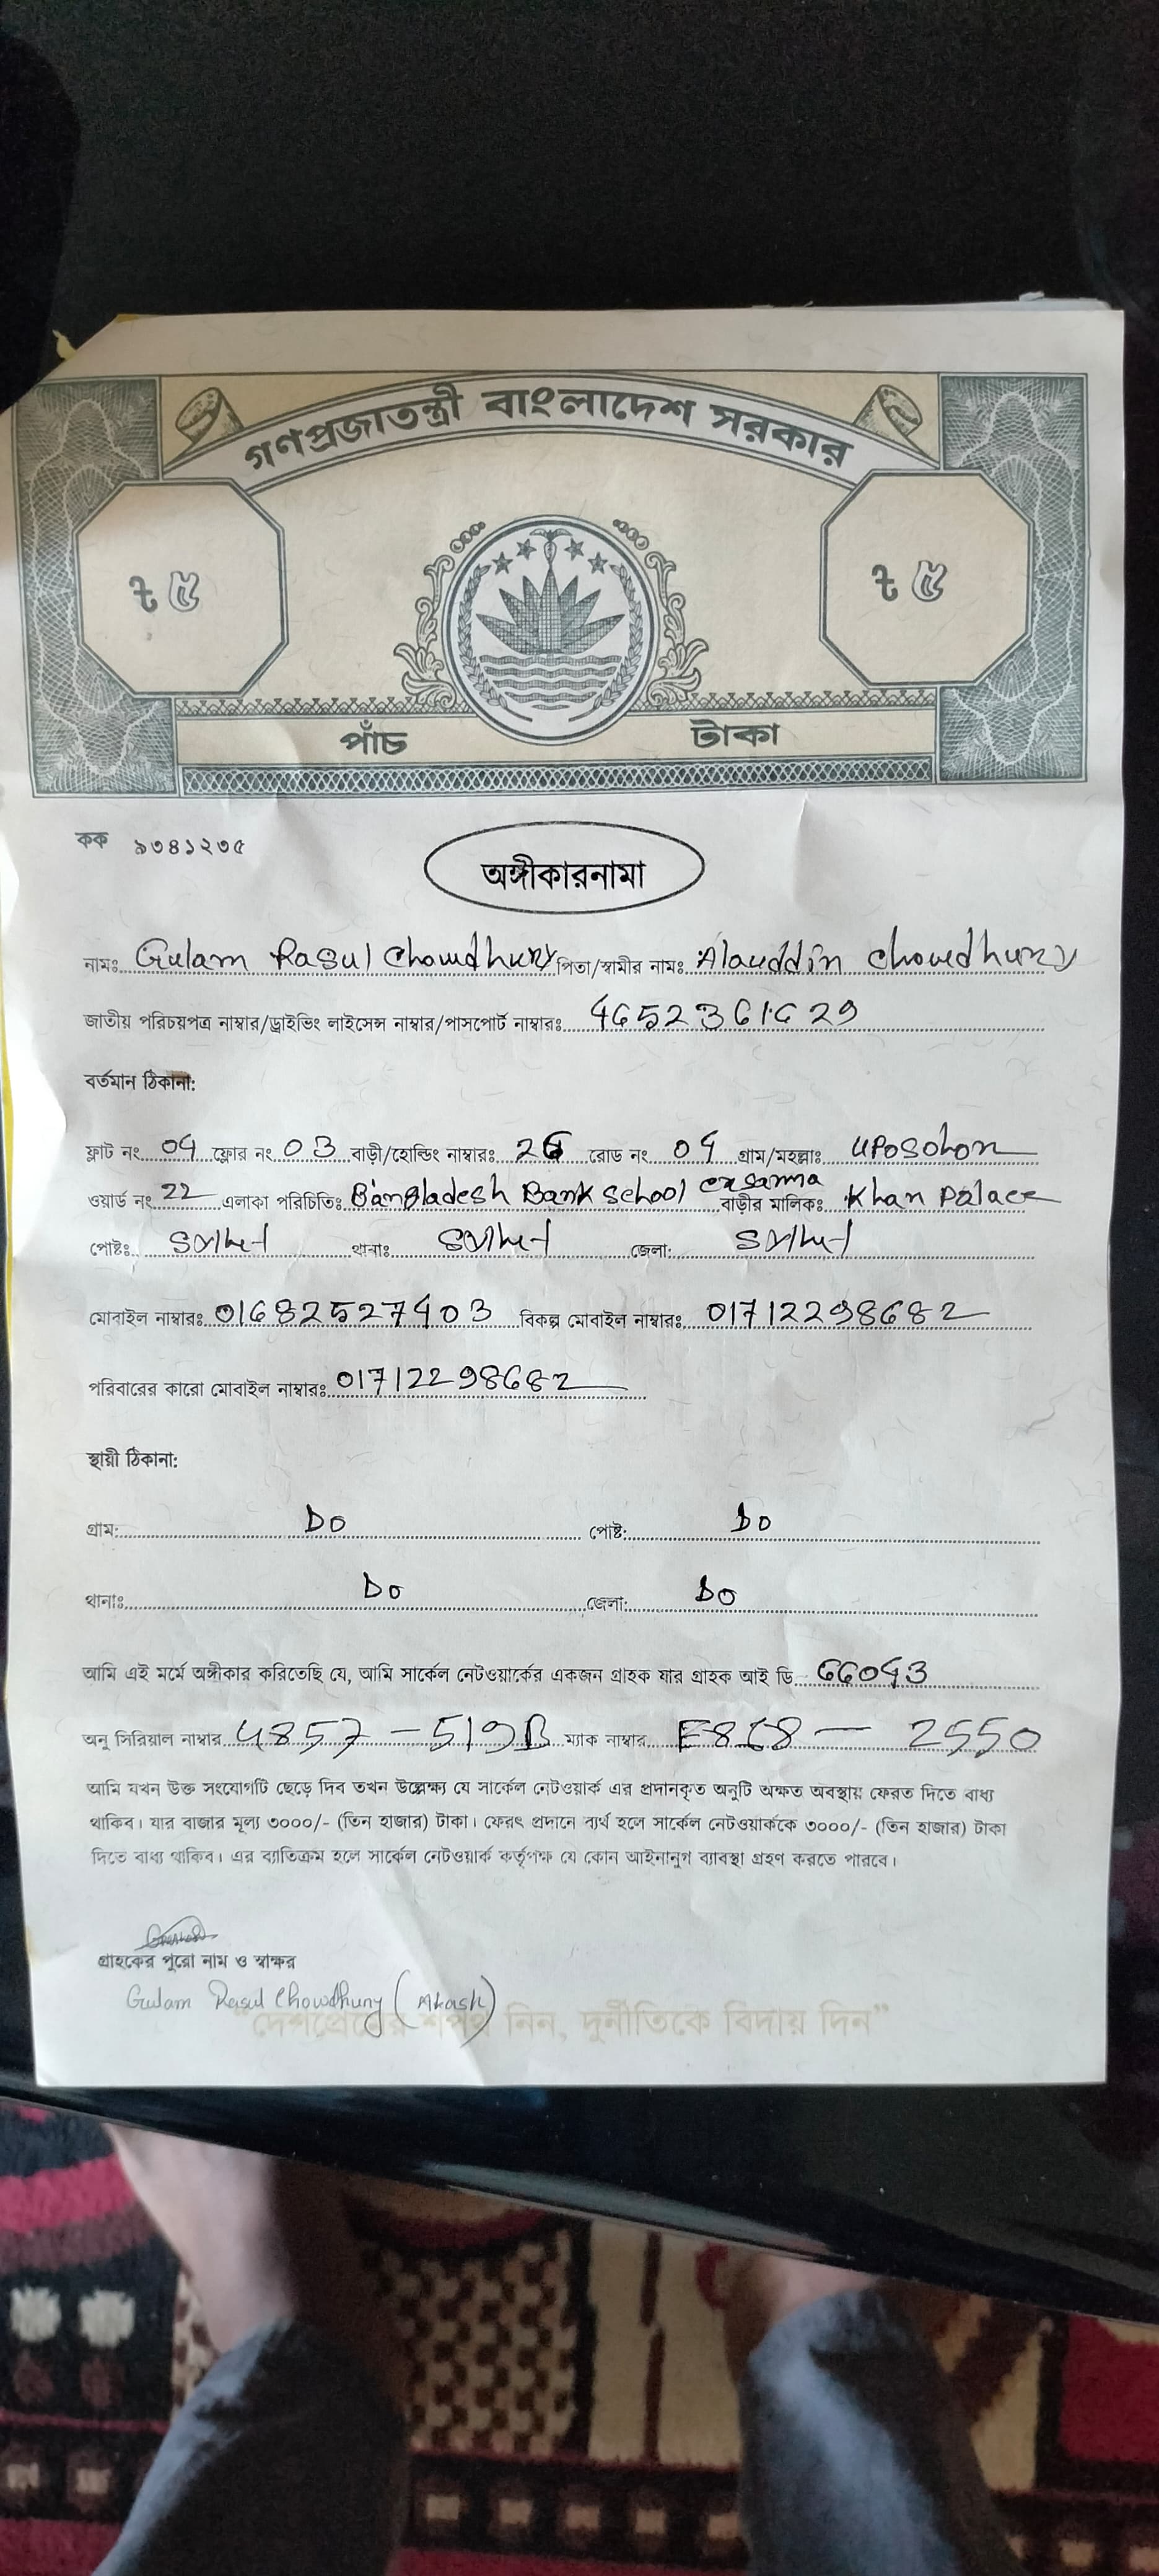 গণপ্রজাতন্ত্রী বাংলাদেশ সরকার
৳ ৫ ৳ ৫
পাঁচ টাকা
কক ৯৩৪১২৩৫
অঙ্গীকারনামা
নামঃ Gulam Rasul Chowdhury পিতা/স্বামীর নামঃ Alauddin Chowdhury
জাতীয় পরিচয়পত্র নাম্বার/ড্রাইভিং লাইসেন্স নাম্বার/পাসপোর্ট নাম্বারঃ 4652361629
বর্তমান ঠিকানা:
ফ্লাট নং 04 ফ্লোর নং 03 বাড়ী/হোল্ডিং নাম্বারঃ 26 রোড নং 04 গ্রাম/মহল্লাঃ UPosohon
ওয়ার্ড নং 22 এলাকা পরিচিতিঃ Bangladesh Bank school বাড়ীর মালিকঃ Khan Palace
পোষ্টঃ Sylhet থানাঃ Sylhet জেলা: Sylhet
মোবাইল নাম্বারঃ 01682527403 বিকল্প মোবাইল নাম্বারঃ 01712298682
পরিবারের কারো মোবাইল নাম্বারঃ 01712298682
স্থায়ী ঠিকানা:
গ্রাম: Do পোষ্ট: Do
থানাঃ Do জেলা: Do
আমি এই মর্মে অঙ্গীকার করিতেছি যে, আমি সার্কেল নেটওয়ার্কের একজন গ্রাহক যার গ্রাহক আই ডি 66043
অনু সিরিয়াল নাম্বার 4857 - 519B ম্যাক নাম্বার E868 - 2550
আমি যখন উক্ত সংযোগটি ছেড়ে দিব তখন উল্লেক্ষ্য যে সার্কেল নেটওয়ার্ক এর প্রদানকৃত অনুটি অক্ষত অবস্থায় ফেরত দিতে বাধ্য
থাকিব। যার বাজার মূল্য ৩০০০/- (তিন হাজার) টাকা। ফেরৎ প্রদানে ব্যর্থ হলে সার্কেল নেটওয়ার্ককে ৩০০০/- (তিন হাজার) টাকা
দিতে বাধ্য থাকিব। এর ব্যাতিক্রম হলে সার্কেল নেটওয়ার্ক কর্তৃপক্ষ যে কোন আইনানুগ ব্যাবস্থা গ্রহণ করতে পারবে।
গ্রাহকের পুরো নাম ও স্বাক্ষর
Gulam Rasul Chowdhury (Akash)
“দেশপ্রেমের শপথ নিন, দুর্নীতিকে বিদায় দিন”